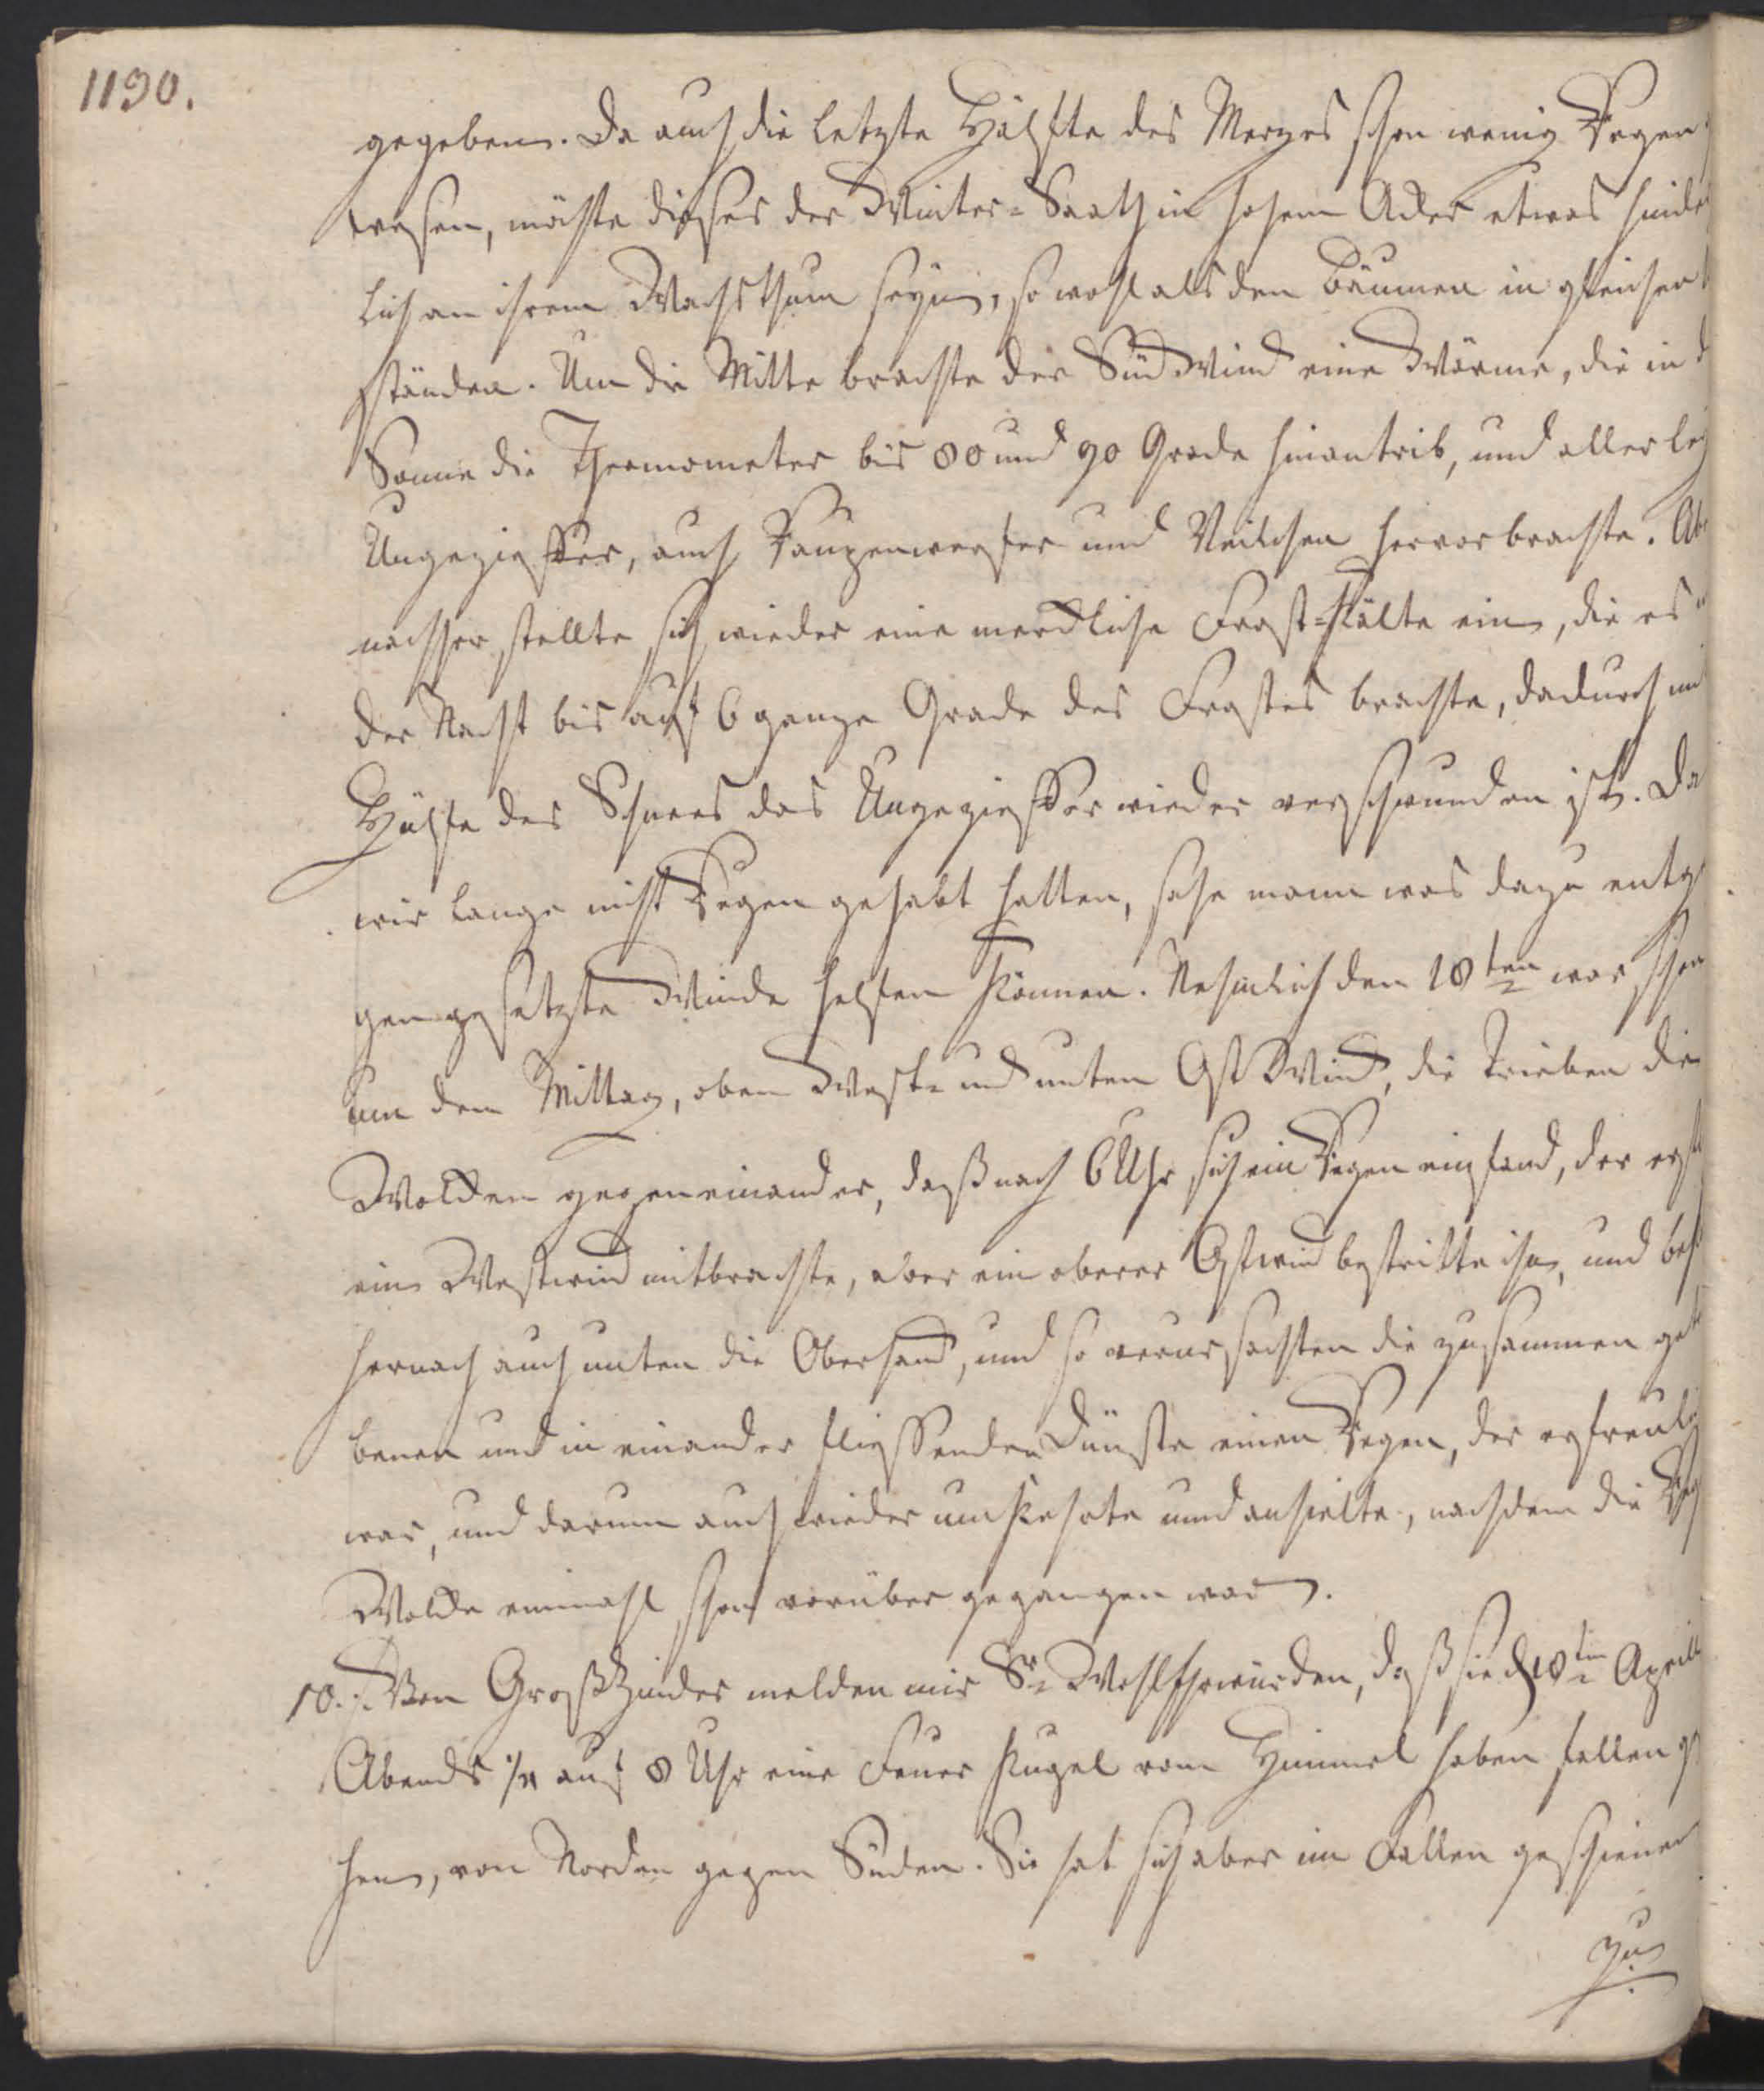 1190.
gegeben. Da auch die letzte Hälfte des Merzes schon wenig Regen
wesen, möchte dieses der Winter-Saath in hohem Acker etwas hinder
lich an ihrem Wachsthum seyn, so wohl als den Bäumen in gleichen
ständen. Um die Mitte brachte der Süd Wind eine Wärme, die in d
Sonne die Thermometer bis 80 und 90 Grade hinantrib, und allerley
Ungezieffer, auch und Veilchen hervorbrachte. Ab
nachher stellte sich wieder eine merckliche Frost-Kälte ein, die es
der Nacht bis auf 6 ganze Grade des Frostes brachte, dadurch mi
Hülfe des Schnees das Ungezieffer wieder verschwunden ist. Da
wir lange nicht Regen gehabt hatten, sahe mann was dazu entge
gengesetzte Winde helfen können. Nehmlich den 18ten war schon
um den Mittag, oben West- und unten Ost Wind, die trieben die
Wolcken gegen einander, daß nach 6 Uhr sich ein Regen einfand, der erst
ein Westwind mitbrachte, aber ein oberer Ostwind bestritte ihn, und beh
hernach auch unten die Oberhand, und so verursachten die zusammen get
benen und in einander fliessenden Dünste einen Regen, der erfreulich
war, und darum auch wieder umkehrte und anhielte, nachdem die Reg
Wolcke einmahl schon vorüber gegangen war.
10. Von melden mir Sr. Wohlehrwürden, daß sie d 18ten Aprill
Abends auf 8 Uhr eine Feuer Kugel vom Himmel haben fallen ge
hen, von Norden gegen Süden. Sie hat sich aber im Fallen geschienen
zu